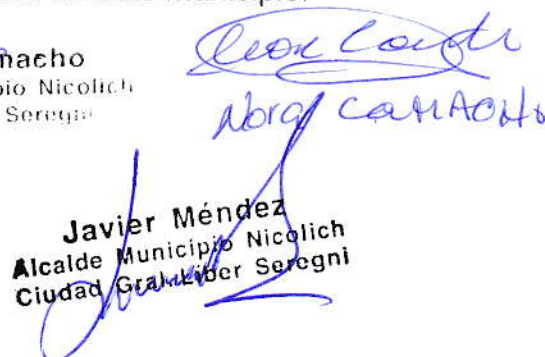 Municipio.
macho
pio Nicolich
Seregni
Nora CAMACHO
Javier Méndez
Alcalde Municipio Nicolich
Ciudad Gral. Liber Seregni